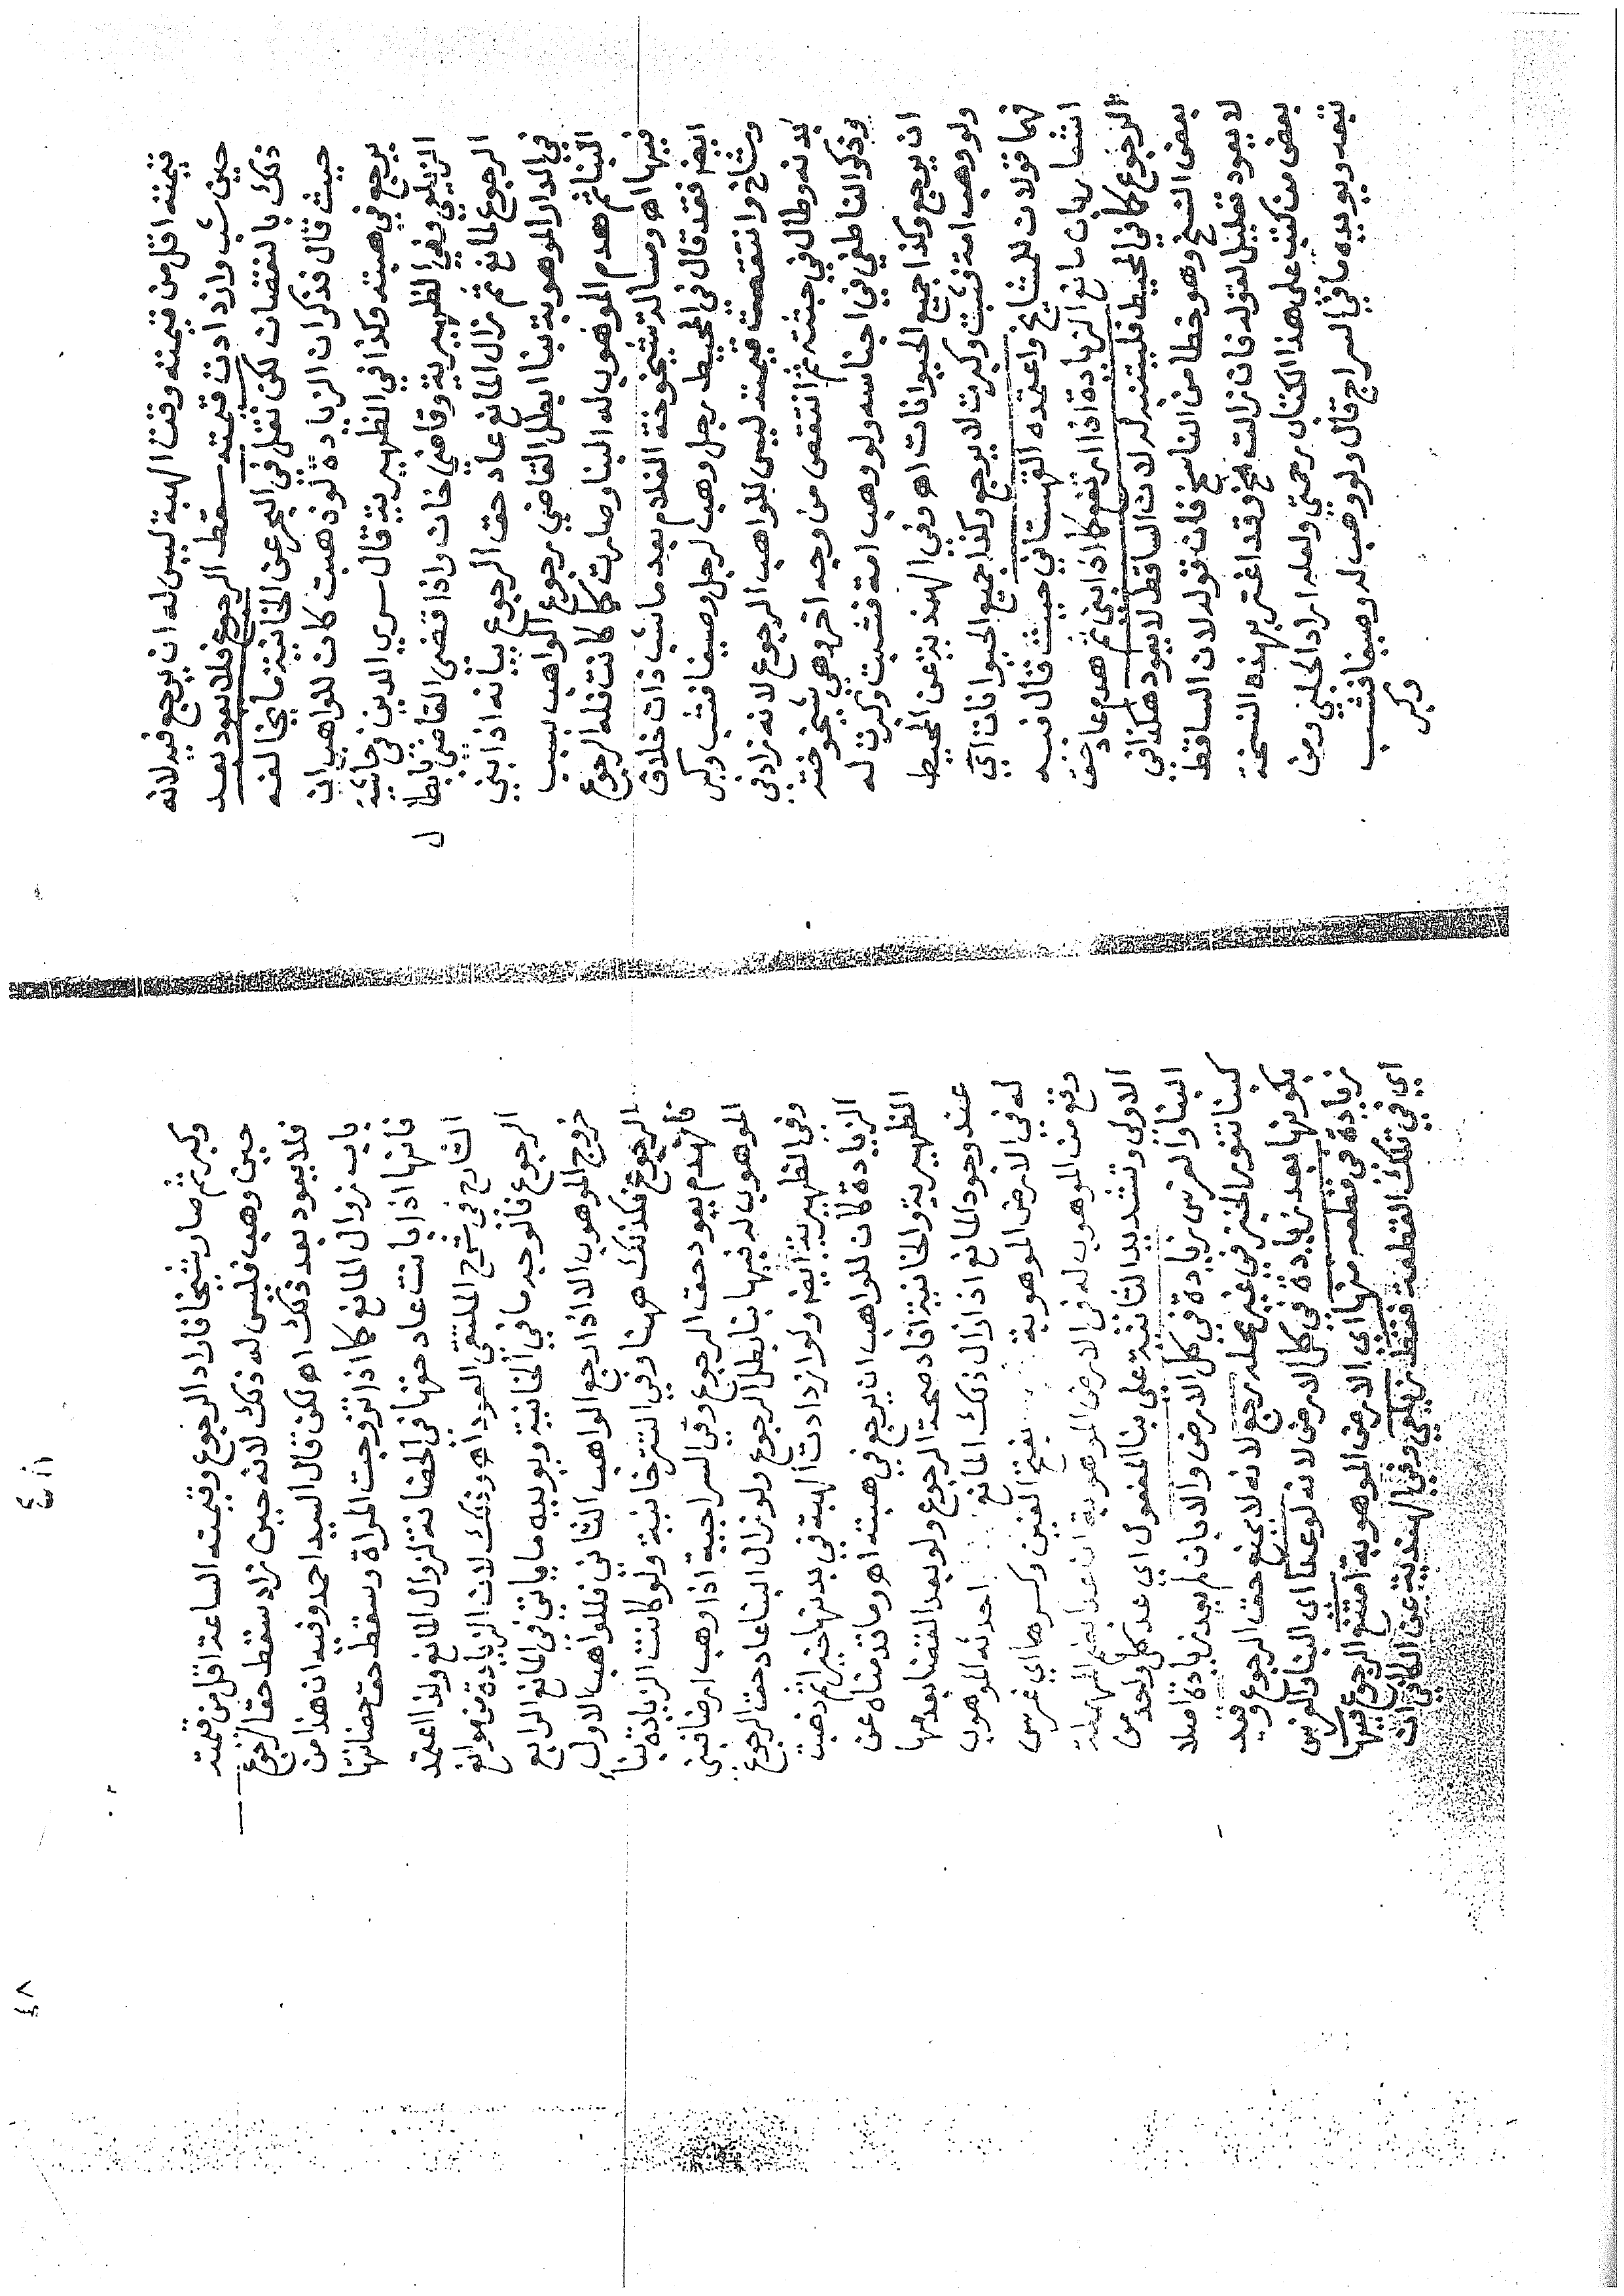 قيمته اقل من قيمته وقت الهبة ليس له ان يرجع فيه لانه
حين شب وازدادت قيمته سقط الرجوع فلا يعود بعد
ذلك بالنقصان لكن نقل في البحر عن الخانية ما يخالفه
حيث قال فذكر ان الزيادة لو ذهبت كان للواهب ان
يرجع في هبته وكذا في الظهيرية قال سري الدين في حاشية
الزيلعي وفي الظهيرية وقاضي خان واذا قضى القاضي بابطا
ل
الرجوع لمانع ثم زال المانع عاد حق الرجوع بيانه اذا بني
في الدار الموهوبة بناء ابطل القاضي رجوع الواهب بسبب
البنا ثم هدم الموهوب له البنا وصارت كما كانت فله الرجوع
فيها اه ومسالة شيخوخة الغلام بعد ما شب ذات خلاف
ايضا فقد قال في المحيط رجل وهب لرجل وصيفا فشب وكبر
وشاخ وانتقصت قيمته ليس للواهب الرجوع لانه زاد في
بدنه وطال في جثته ثم انتقص من وجه اخر وهي شيخوخته
وذكر الناطفي في اجناسه ولو وهب امة فشبت وكبرت له
ان يرجع وكذا جميع الحيوانات اه وفي الهندية عن المحيط
ولو وهب امة فشبت وكبرت لا يرجع وكذا جميع الحيوانات اي
فهما قولان للمشايخ واعتمده القهستاني حيث قال فيه
اشار بان مانع الزيادة اذا ارتفع كما اذا بنى ثم هدم عاد حق
الرجوع كما في المحيط فليتنبه لان الساقط لا يعود هكذا في
بعض النسخ وهو خطا من الناسخ فان قوله لان الساقط
لا يعود تعليل لقوله فان زالت الخ وقد اغتر بهذه النسخة
بعض من كتب على هذا الكتاب رحمتي ولعله اراد الحلبي ومن
تبعه ويويده ما في السراج قال ولو وهب له وصيفا فشب
وكبر
وكبر ثم صار شيخا فاراد الرجوع وقيمته الساعة اقل من قيمته
حين وهب فليس له ذلك لانه حين زاد سقط حق الرجوع
فلا يعود بعد ذلك اه لكن قال السيد احمد وفيه ان هذا من
باب زوال المانع كما اذا تزوجت المراة وسقط حق حضانتها
فانها اذا بانت عاد حقها في الحضانة لزوال المانع ولذا اعتمد
الشارح في شرح الملتقى العود اه وذلك لان الزيادة من موانع
الرجوع فانوجه ما في الخانية ويويده ما ياتي في المانع الرابع
خروج الموهوب الا اذا رجع الواهب الثاني فللواهب الاول
الرجوع فكذلك هنا وفي التترخانية ولو كانت الزيادة بناء
فانهدم يعود حق الرجوع وفي السراجية اذا وهب ارضا فبنى
الموهوب له فيها بنا بطل الرجوع ولو زال البنا عاد حق الرجوع
وفي الظهيرية ايضا ولو ازدادت الهبة في بدنها خيرا ثم ذهبت
الزيادة كان للواهب ان يرجع في هبته اه وما قدمناه عن
الظهيرية والخانية افاد صحة الرجوع ولو بعد القضا بعدمها
عند وجود المانع اذا زال ذلك المانع احدثه الموهوب
له في الارض الموهوبة بفتح الغين وكسرها اي غرس
وقع من الموهوب له في الارض الموهوبة ان عدا بضم المهملة
الاولى وتشديد الثانية على بنا المفعول اي عد كل واحد من
البنا والغرس زيادة في كل الارض والا بان لم يعد زيادة اصلا
كبنا تنور الخبز في غير محله رجع لانه لا يمنع حق الرجوع وقيد
بكونها بعد زيادة في كل الارض لانه لو عدا اي البنا والغرس
زيادة في قطعه منها اي الارض الموهوبة امتنع الرجوع فيها
اي في تلك القطعة فقط زيلعي وفي الهندية عن الكافي ان
٤٨